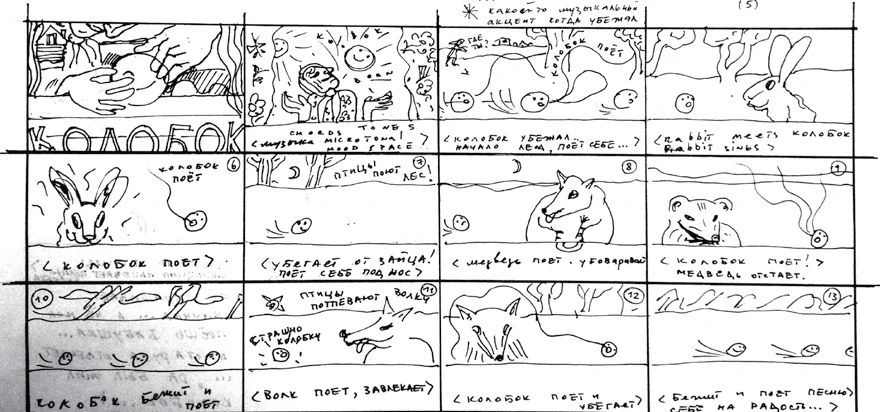 * какой-то музыкальный
акцент когда убежал
(5)
КОЛОБОК
КОЛОБОК
BORN
CHORDS TONES
< музыка MICROTONAL >
MOOD SPACE
ГДЕ
ТЫ!
КОЛОБОК ПОЁТ
< КОЛОБОК УБЕЖАЛ...
НАЧАЛО ЛЕЯ, ПОЁТ СЕБЕ... >
< Rabbit meets КОЛОБОК
Rabbit SINGS >
6
КОЛОБОК
ПОЁТ
< КОЛОБОК ПОЁТ >
7
ПТИЦЫ
ПОЮТ
ЛЕС!
< УБЕГАЕТ ОТ ЗАЙЦА!
ПОЁТ СЕБЕ ПОД НОС >
8
< медведь поёт. уговаривает
9
< КОЛОБОК ПОЁТ! >
МЕДВЕДЬ ОТСТАЕТ.
10
КОЛОБОК. Бежит и
поёт
11
ПТИЦЫ
ПОТПЕВАЮТ ВОЛКУ
СТРАШНО
КОЛОБКУ
< ВОЛК ПОЕТ, ЗАВЛЕКАЕТ >
12
< КОЛОБОК ПОЁТ И
УБЕГАЕТ >
13
< Бежит и поёт песню
СЕБЕ НА РАДОСТЬ... >